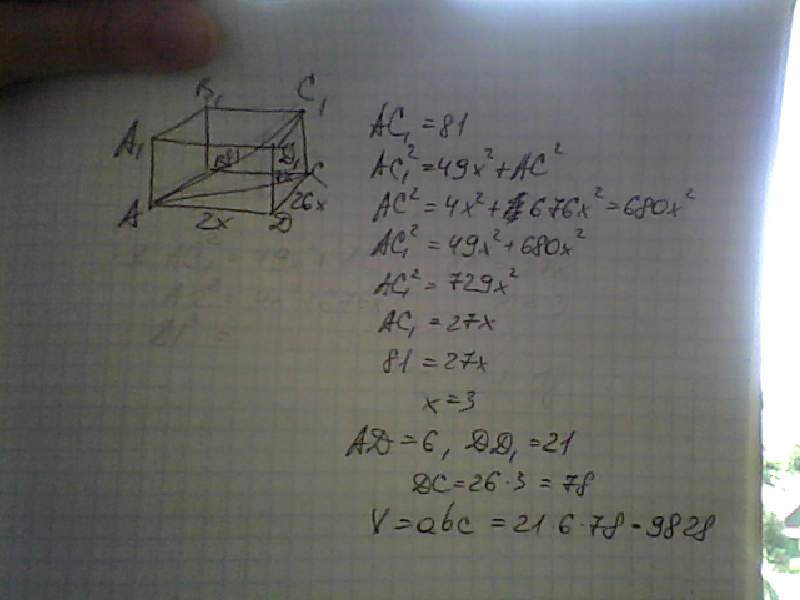 B₁ C₁
A₁ D₁
B C
A 2x D 26x
AC₁ = 81
AC₁² = 49x² + AC²
AC² = 4x² + 676x² = 680x²
AC₁² = 49x² + 680x²
AC₁² = 729x²
AC₁ = 27x
81 = 27x
x = 3
AD = 6, DD₁ = 21
DC = 26 · 3 = 78
V = abc = 21 6 · 78 = 9828